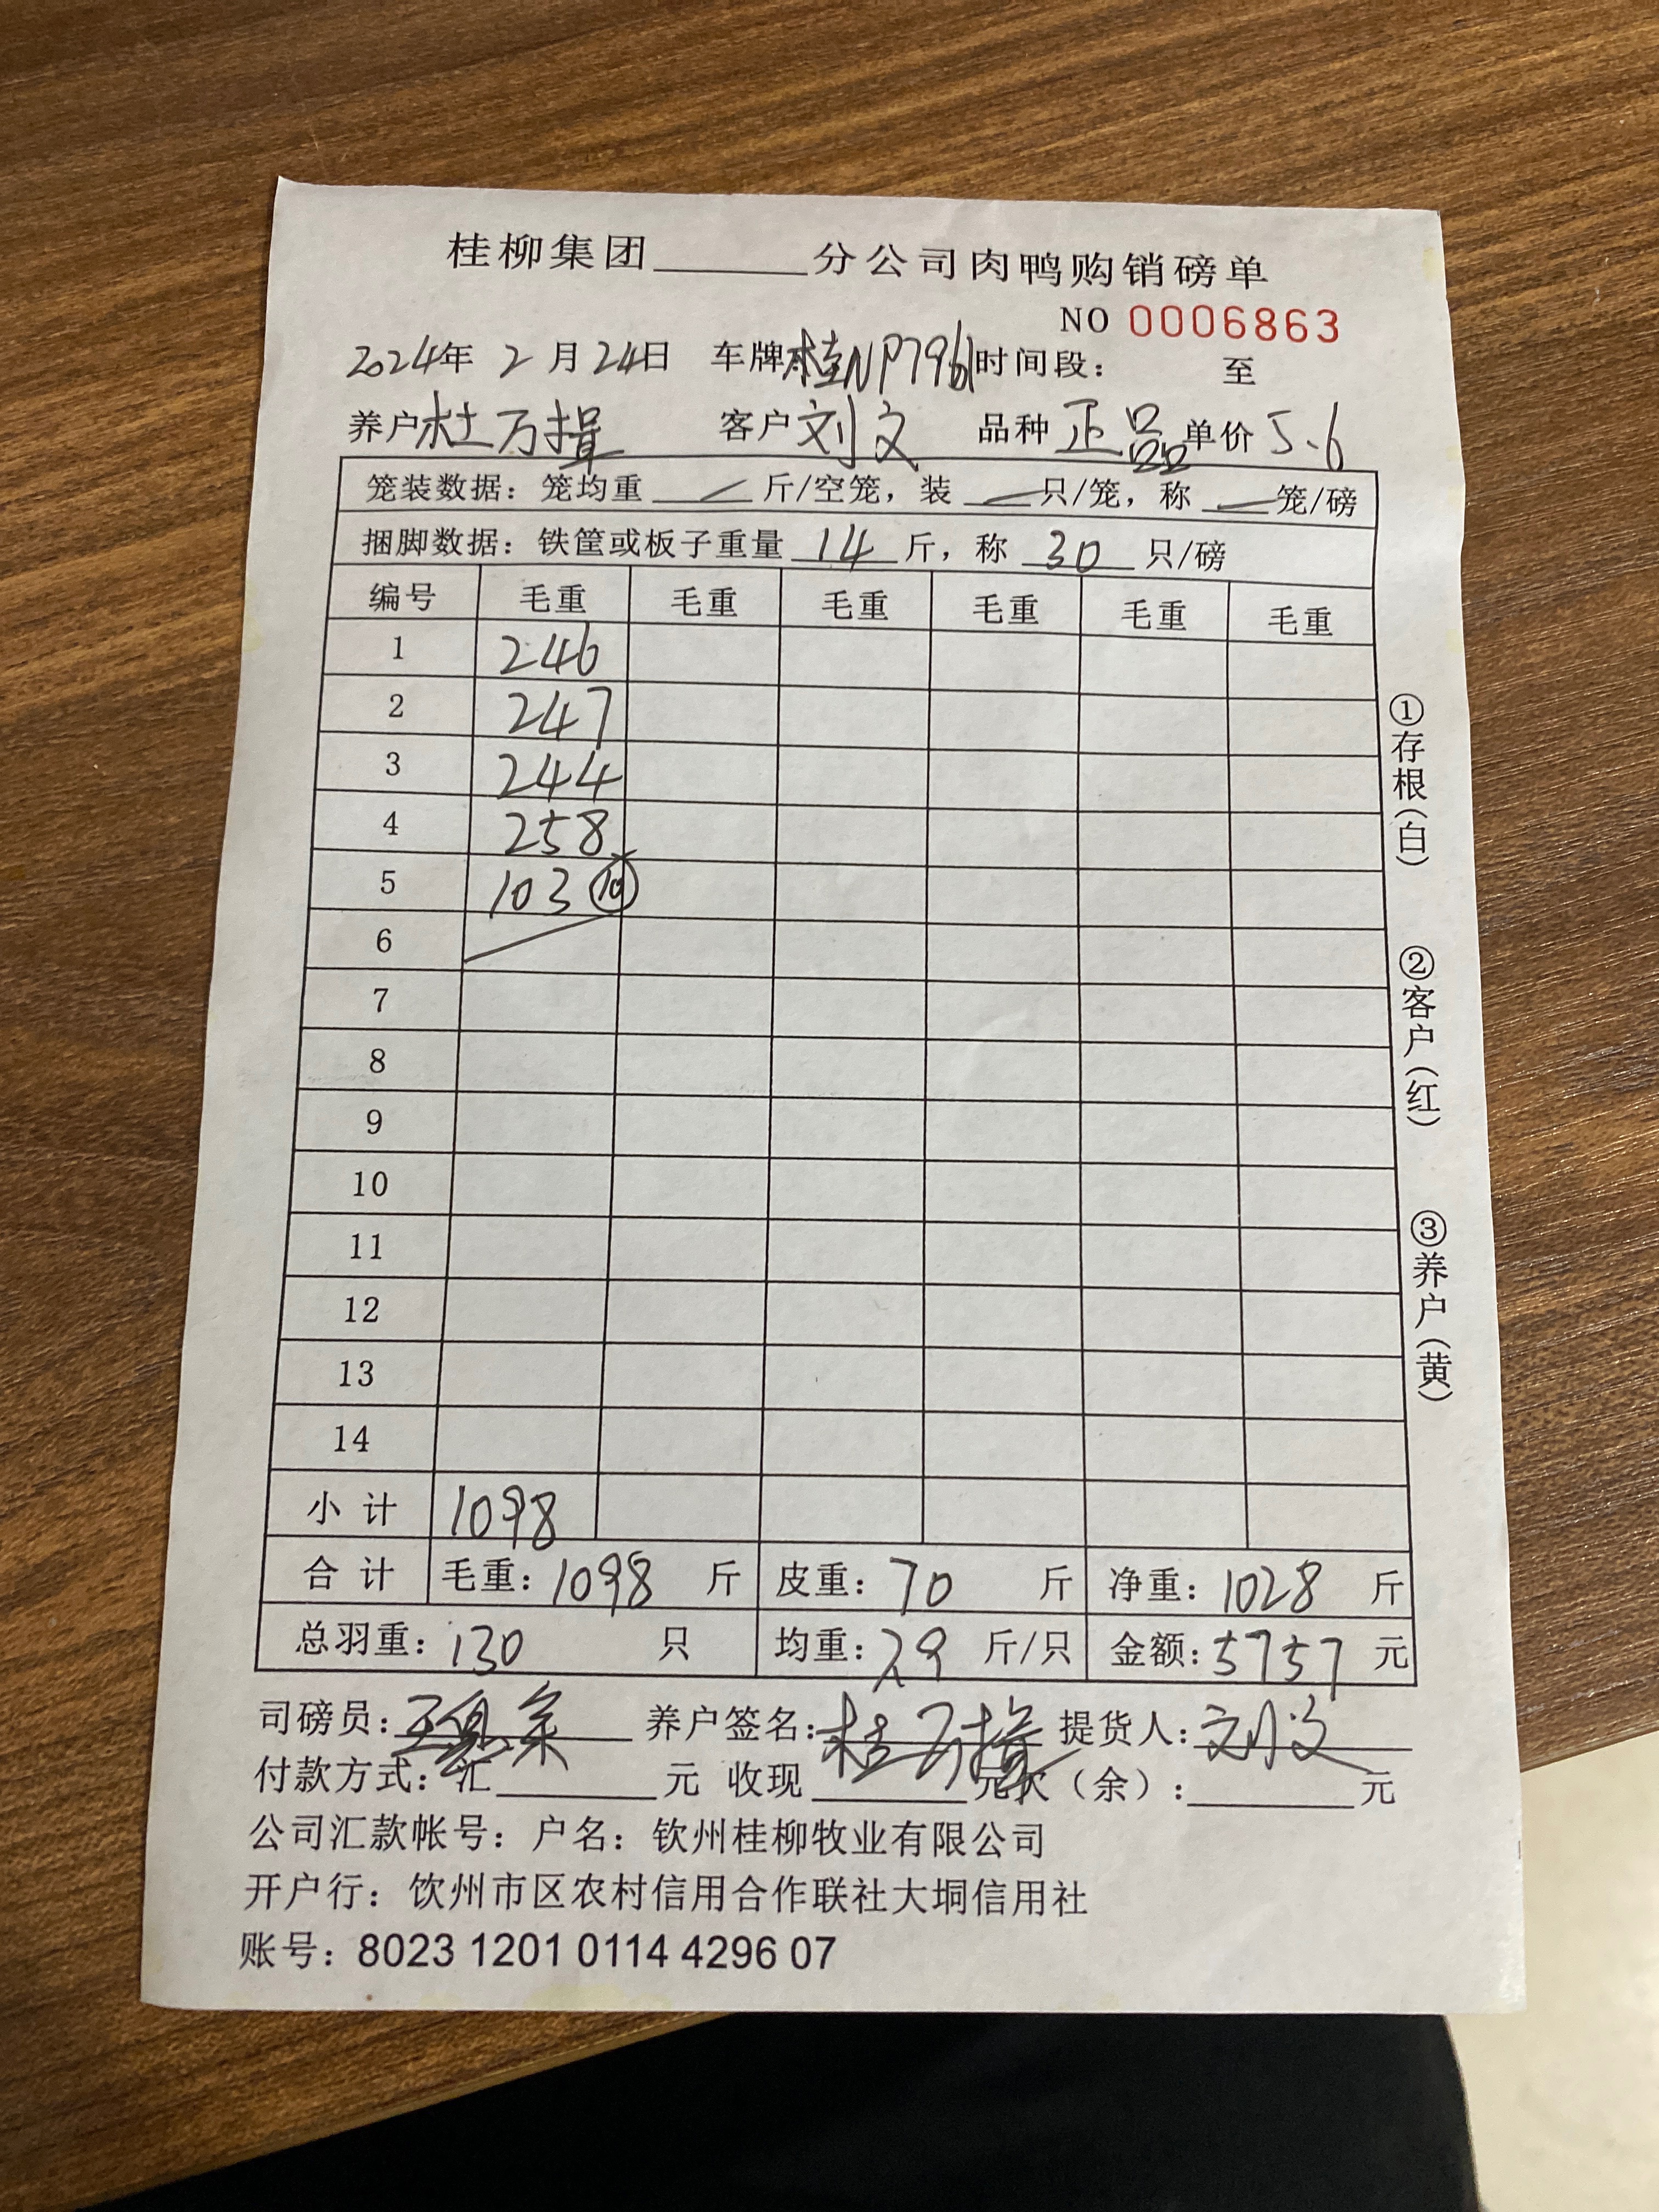 桂柳集团______分公司肉鸭购销磅单
NO 0006863
2024年 2 月 24日 车牌桂NP7961 时间段: 至
养户 杜万揖 客户 刘文 品种 正品 单价 5.6
笼装数据: 笼均重 / 斤/空笼, 装 / 只/笼, 称 / 笼/磅
捆脚数据: 铁筐或板子重量 14 斤, 称 30 只/磅
编号 毛重 毛重 毛重 毛重 毛重 毛重
1 246
2 247
3 244
4 258
5 103 ⑩
6
7
8
9
10
11
12
13
14
小 计 1098
合 计 毛重: 1098 斤 皮重: 70 斤 净重: 1028 斤
总羽重: 130 只 均重: 7.9 斤/只 金额: 5757 元
司磅员: 养户签名: 杜万揖 提货人: 刘文
付款方式: 汇______元 收现______元欠(余):______元
公司汇款帐号: 户名: 钦州桂柳牧业有限公司
开户行: 饮州市区农村信用合作联社大垌信用社
账号: 8023 1201 0114 4296 07
①存根(白)
②客户(红)
③养户(黄)